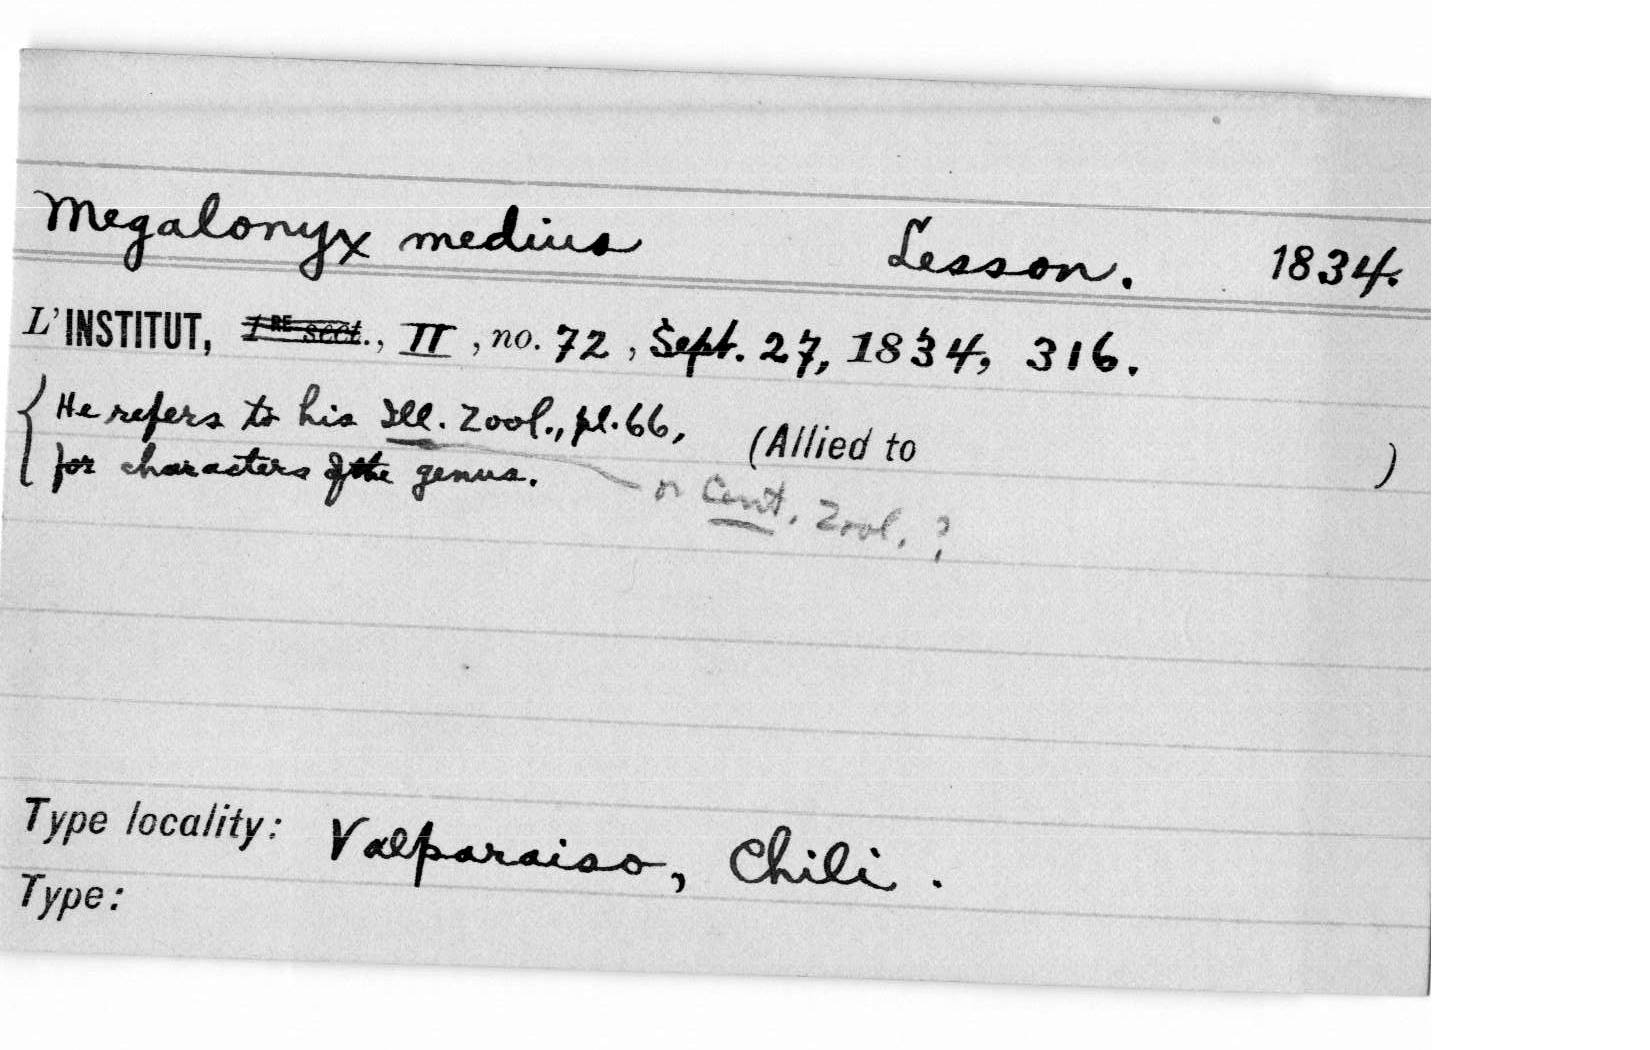 Megalonyx medius Lesson. 1834.
L'INSTITUT, 1RE sect., II, no. 72, Sept. 27, 1834, 316.
He refers to his Ill. Zool., pl. 66, (Allied to )
for characters of the genus.
or Cent. Zool. ?
Type locality: Valparaiso, Chili.
Type: